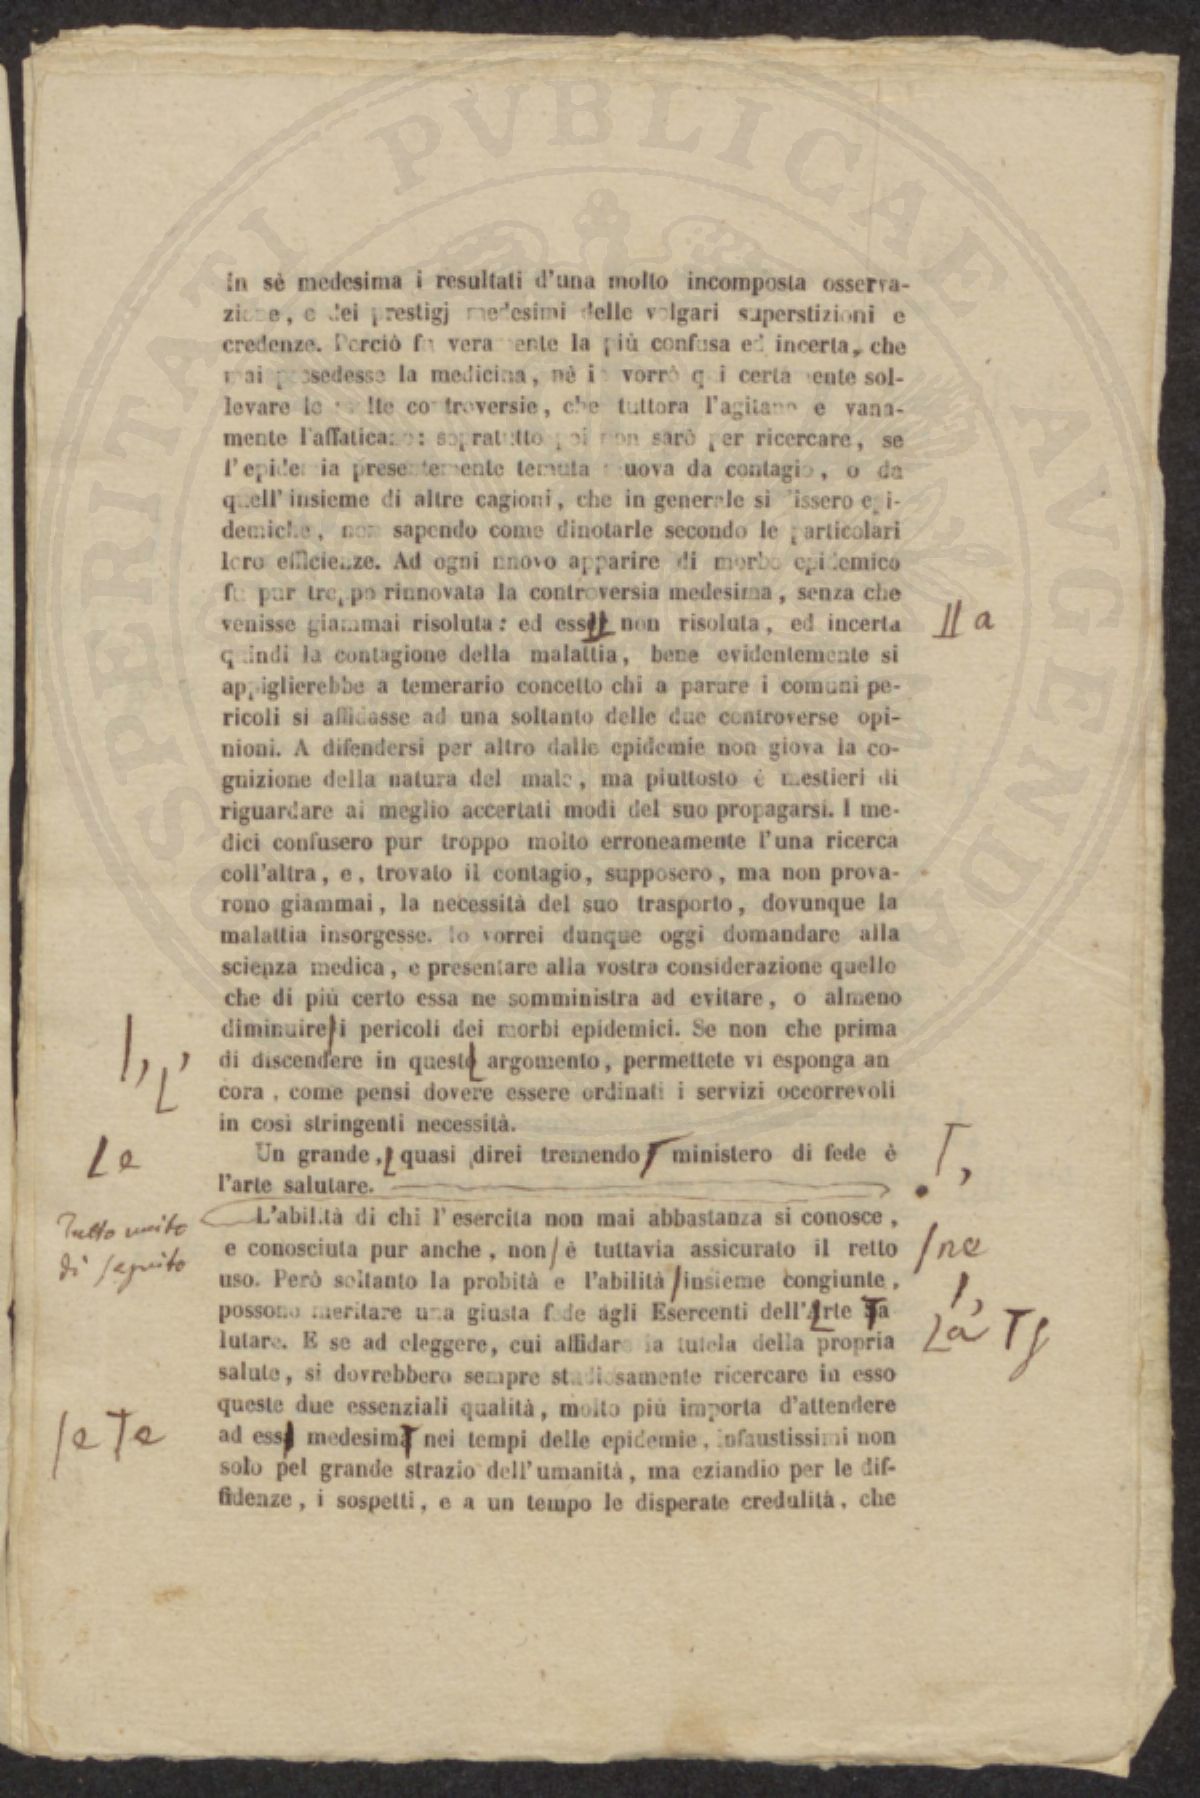 in sè medesima i resultati d'una molto incomposta osserva-
zione, e dei prestigj medesimi delle volgari superstizioni e
credenze. Perciò fu veramente la più confusa ed incerta, che
mai possedesse la medicina, nè io vorrò qui certamente sol-
levare le molte controversie, che tuttora l'agitano e vana-
mente l'affaticano: sopratutto poi non sarò per ricercare, se
l'epidemia presentemente temuta muova da contagio, o da
quell'insieme di altre cagioni, che in generale si dissero epi-
demiche, non sapendo come dinotarle secondo le particolari
loro efficienze. Ad ogni nnovo apparire di morbo epidemico
fu pur troppo rinnovata la controversia medesima, senza che
venisse giammai risoluta: ed ess non risoluta, ed incerta
II a
quindi la contagione della malattia, bene evidentemente si
appiglierebbe a temerario concetto chi a parare i comuni pe-
ricoli si affidasse ad una soltanto delle due controverse opi-
nioni. A difendersi per altro dalle epidemie non giova la co-
gnizione della natura del male, ma piuttosto è mestieri di
riguardare ai meglio accertati modi del suo propagarsi. I me-
dici confusero pur troppo molto erroneamente l'una ricerca
coll'altra, e, trovato il contagio, supposero, ma non prova-
rono giammai, la necessità del suo trasporto, dovunque la
malattia insorgesse. Io vorrei dunque oggi domandare alla
scienza medica, e presentare alla vostra considerazione quello
che di più certo essa ne somministra ad evitare, o almeno
diminuire i pericoli dei morbi epidemici. Se non che prima
di discendere in questo argomento, permettete vi esponga an
cora, come pensi dovere essere ordinati i servizi occorrevoli
in così stringenti necessità.
Un grande, quasi direi tremendo ministero di fede è
L e
l'arte salutare.
Tutto unito
di seguito
L'abilità di chi l'esercita non mai abbastanza si conosce,
e conosciuta pur anche, non è tuttavia assicurato il retto
/ne
uso. Però soltanto la probità e l'abilità insieme congiunte,
possono meritare una giusta fede agli Esercenti dell'Arte Sa
La T s
lutare. E se ad eleggere, cui affidare la tutela della propria
salute, si dovrebbero sempre studiosamente ricercare in esso
queste due essenziali qualità, molto più importa d'attendere
/e T e
ad ess medesima nei tempi delle epidemie, infaustissimi non
solo pel grande strazio dell'umanità, ma eziandio per le dif-
fidenze, i sospetti, e a un tempo le disperate credulità, che
SPERITATI PVBLICAE AVGENDA